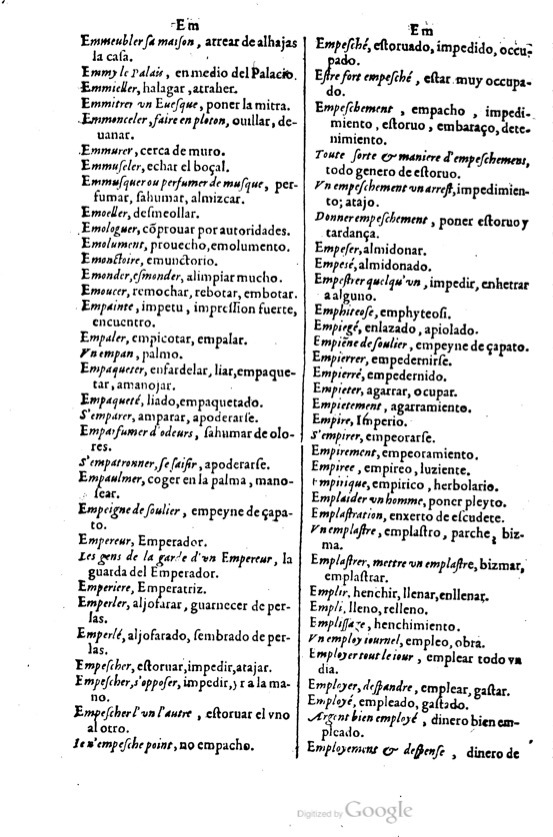 Em
Emmeubler sa maison, arrear de alhajas
la casa.
Emmy le Palais, en medio del Palacio.
Emmieller, halagar, atraher.
Emmitrer vn Euesque, poner la mitra.
Emmonceler, faire en ploton, ouillar, de-
uanar.
Emmurer, cerca de muro.
Emmuseler, echar el boçal.
Emmusquer ou perfumer de musque, per-
fumar, sahumar, almizcar.
Emoeller, desmeollar.
Emologuer, cõprouar por autoridades.
Emolument, prouecho, emolumento.
Emonctoire, emunctorio.
Emonder, esmonder, alimpiar mucho.
Emoucer, remochar, rebotar, embotar.
Empainte, impetu, impression fuerte,
encuentro.
Empaler, empicotar, empalar.
Vn empan, palmo.
Empaqueter, enfardelar, liar, empaque-
tar, amanojar.
Empaqueté, liado, empaquetado.
S'emparer, amparar, apoderarse.
Emparfumer d'odeurs, sahumar de olo-
res.
S'empatronner, se saisir, apoderarse.
Empaulmer, coger en la palma, mano-
sear.
Empeigne de soulier, empeyne de çapa-
to.
Empereur, Emperador.
Les gens de la garde d'vn Empereur, la
guarda del Emperador.
Emperiere, Emperatriz.
Emperler, aljofarar, guarnecer de per-
las.
Emperlé, aljofarado, sembrado de per-
las.
Empescher, estoruar, impedir, atajar.
Empescher, s'opposer, impedir, yr a la ma-
no.
Empescher l'vn l'autre, estoruar el vno
al otro.
Ie n'empesche point, no empacho.
Em
Empesché, estoruado, impedido, occu-
pado.
Estre fort empesché, estar muy occupa-
do.
Empeschement, empacho, impedi-
miento, estoruo, embaraço, dete-
nimiento.
Toute sorte & maniere d'empeschement,
todo genero de estoruo.
Vn empeschement vn arrest, impedimien-
to; atajo.
Donner empeschement, poner estoruo y
tardança.
Empeser, almidonar.
Empesé, almidonado.
Empestrer quelqu'vn, impedir, enhetrar
a alguno.
Emphiteose, emphyteosi.
Empiegé, enlazado, apiolado.
Empiéne de soulier, empeyne de çapato.
Empierrer, empedernirse.
Empierré, empedernido.
Empieter, agarrar, ocupar.
Empietement, agarramiento.
Empire, Imperio.
S'empirer, empeorarse.
Empirement, empeoramiento.
Empiree, empireo, luziente.
Empirique, empirico, herbolario.
Emplaider vn homme, poner pleyto.
Emplastration, enxerto de escudete.
Vn emplastre, emplastro, parche, biz-
ma.
Emplastrer, mettre vn emplastre, bizmar,
emplastrar.
Emplir, henchir, llenar, enllenar.
Empli, lleno, relleno.
Emplissage, henchimiento.
Vn employ iournel, empleo, obra.
Employer tout le iour, emplear todo vn
dia.
Employer, despandre, emplear, gastar.
Employé, empleado, gastado.
Argent bien employé, dinero bien em-
pleado.
Employemens & despense, dinero de
Digitized by Google